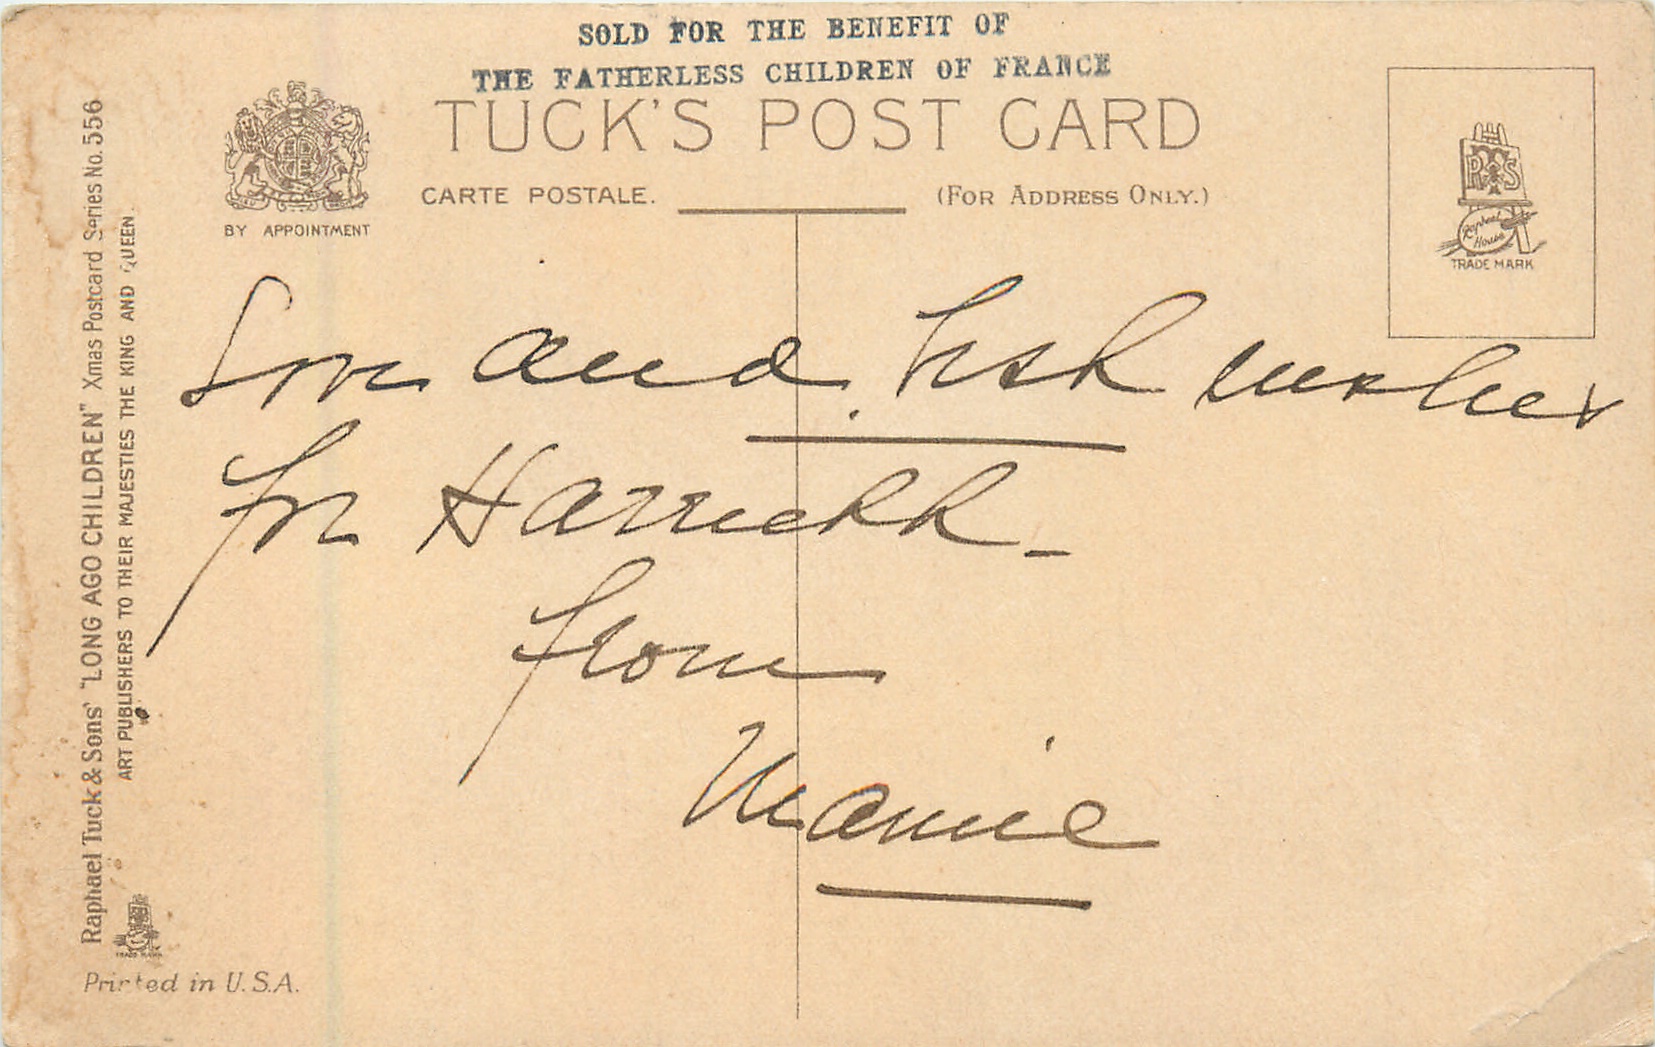 SOLD FOR THE BENEFIT OF
THE FATHERLESS CHILDREN OF FRANCE
TUCK'S POST CARD
CARTE POSTALE.
(FOR ADDRESS ONLY.)
BY APPOINTMENT
RTS
Raphael
House
TRADE MARK
Love and best wishes
for Harriett -
from
Mamie
Raphael Tuck & Sons' "LONG AGO CHILDREN" Xmas Postcard Series No. 556
ART PUBLISHERS TO THEIR MAJESTIES THE KING AND QUEEN
TRADE MARK
Printed in U.S.A.